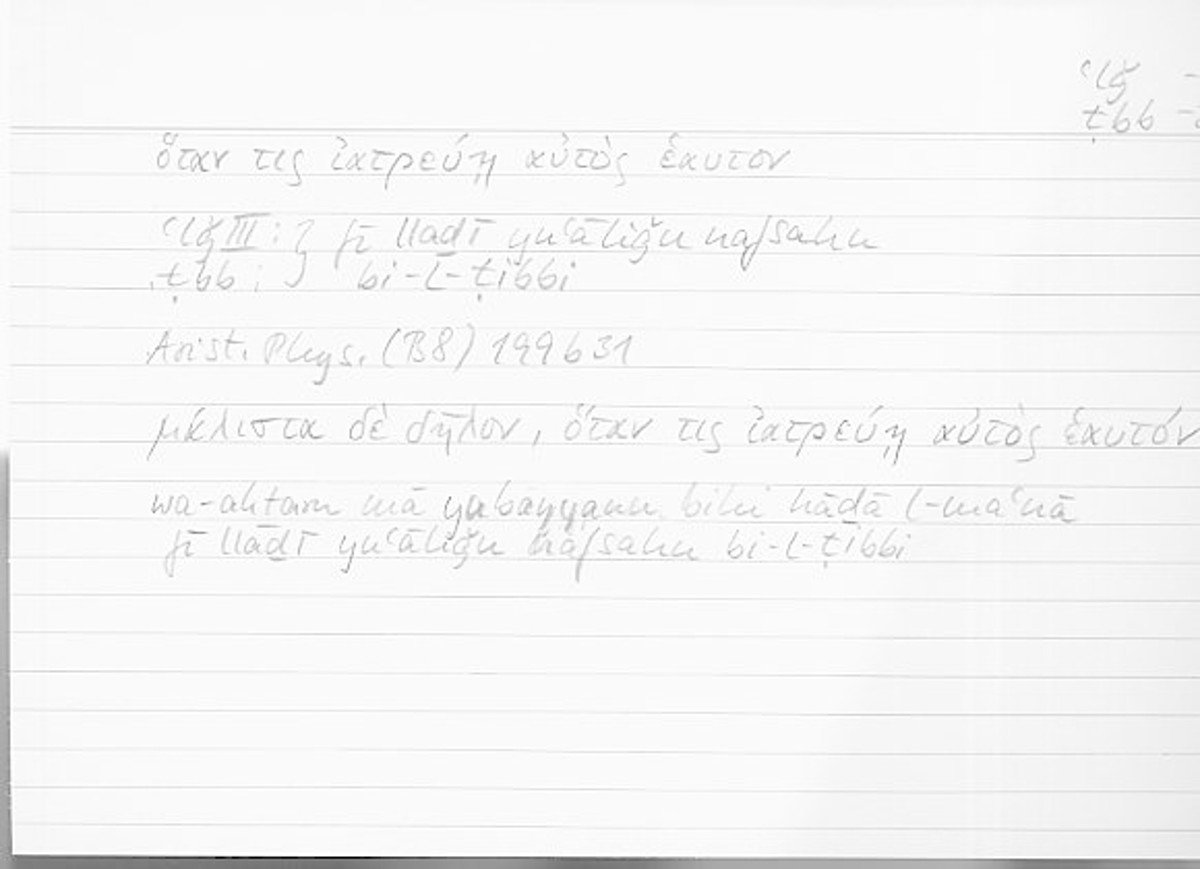 ʿlǧ -
ṭbb -
ὅταν τις ἰατρεύῃ αὐτὸς ἑαυτον
ʿlǧ III : } fī lladī yuʿāliǧu nafsahu
ṭbb : } bi-l-ṭibbi
Arist. Phys. (B8) 199b31
μάλιστα δὲ δῆλον, ὅταν τις ἰατρεύῃ αὐτὸς ἑαυτόν
wa-aktaru mā yubayyanu bihi hādā l-maʿnā
fī llādī yuʿāliǧu nafsahu bi-l-ṭibbi